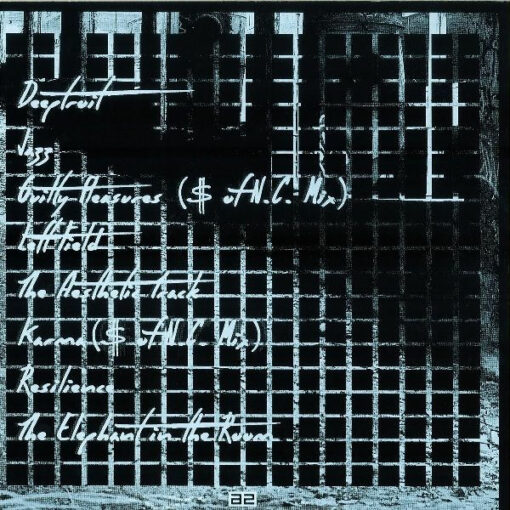 Deepfruit
Jazz
Guilty Pleasures ($ of N.C. Mix)
Left Field
The Aesthetic Track
Karma ($ of N.C. Mix)
Resilience
The Elephant in the Room
a2